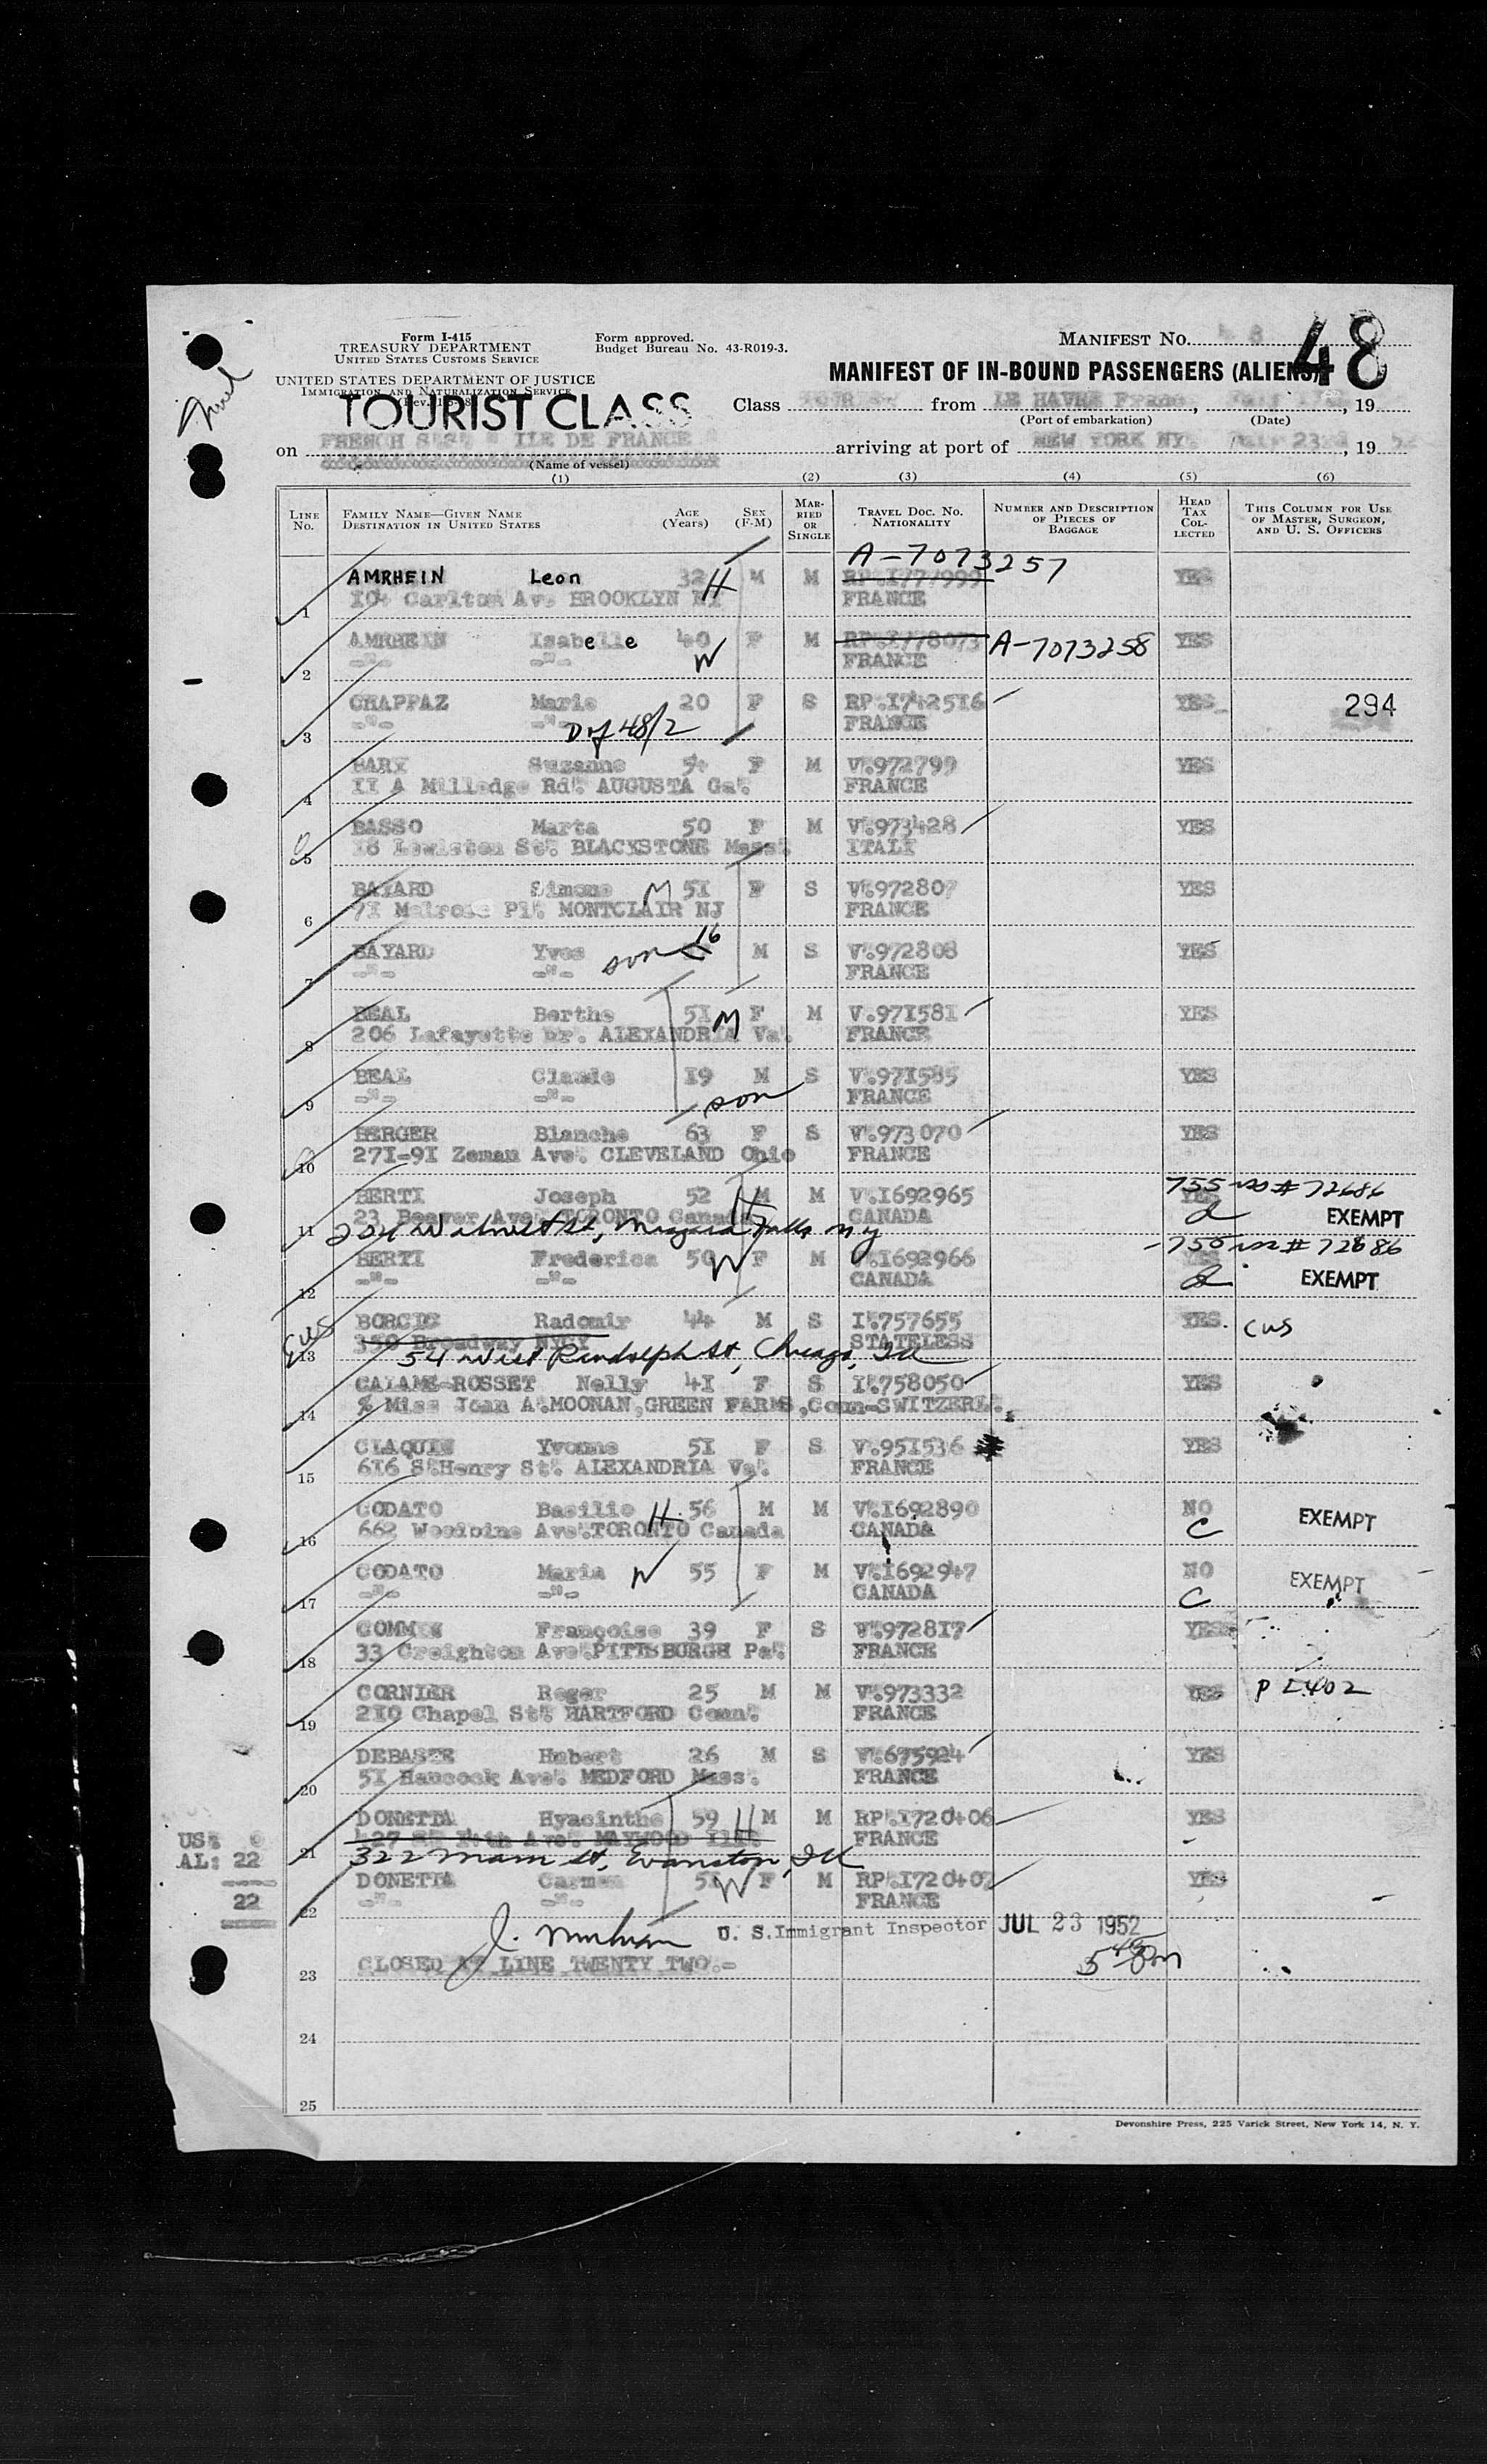 Form I-415
TREASURY DEPARTMENT
UNITED STATES CUSTOMS SERVICE
Form approved.
Budget Bureau No. 43-R019-3.
MANIFEST No. 48
UNITED STATES DEPARTMENT OF JUSTICE
IMMIGRATION AND NATURALIZATION SERVICE
MANIFEST OF IN-BOUND PASSENGERS (ALIENS)
TOURIST CLASS
Class from LE HAVRE France, , 19
(Port of embarkation) (Date)
on FRENCH S.S. " ILE DE FRANCE "
arriving at port of NEW YORK NY. 23rd, 1952
(Name of vessel)
(1) (2) (3) (4) (5) (6)
LINE No. FAMILY NAME—GIVEN NAME DESTINATION IN UNITED STATES AGE (Years) SEX (F-M) MARRIED OR SINGLE TRAVEL DOC. NO. NATIONALITY NUMBER AND DESCRIPTION OF PIECES OF BAGGAGE HEAD TAX COLLECTED THIS COLUMN FOR USE OF MASTER, SURGEON, AND U. S. OFFICERS
A-7073257
AMRHEIN Leon 32 H M M RP.I771999 YES
1 104 Carlton Av. BROOKLYN NY FRANCE
AMRHEIN Isabelle 40 F M RP.I778073 A-7073258 YES
2 -"- -"- W FRANCE
CHAPPAZ Marie 20 F S RP.I742516 YES 294
3 -"- -"- D of 48/2 FRANCE
BARY Suzanne 54 F M V.972799 YES
4 II A Milledge Rd. AUGUSTA Ga. FRANCE
BASSO Marta 50 F M V.973428 YES
5 18 Lewiston St. BLACKSTONE Mass. ITALY
BAYARD Simone M 51 F S V.972807 YES
6 71 Melrose Pl. MONTCLAIR NJ FRANCE
BAYARD Yves son 16 M S V.972808 YES
7 -"- -"- FRANCE
BEAL Berthe 51 M F M V.971581 YES
8 206 Lafayette Dr. ALEXANDRIA Va. FRANCE
BEAL Claude 19 M S V.971585 YES
9 -"- -"- son FRANCE
BERGER Blanche 63 F S V.973070 YES
10 271-91 Zeman Ave. CLEVELAND Ohio FRANCE
755 # 72686
BERTI Joseph 52 H M M V.I692965 YES
23 Beaver Ave. TORONTO Canada CANADA EXEMPT
11 204 Walnut St, Niagara Falls NY
755 # 72686
BERTI Frederica 50 W F M V.I692966 YES
12 -"- -"- CANADA EXEMPT
BORCIC Radomir 44 M S I.757655 YES. cus
350 Broadway NYCY STATELESS
13 54 West Randolph St, Chicago, Ill
CALAME-ROSSET Nelly 41 F S I.758050 YES
14 % Miss Joan A.MOONAN,GREEN FARMS,Conn-SWITZERL.
CLAQUIN Yvonne 51 F S V.951536 YES
15 616 S.Henry St. ALEXANDRIA Va. FRANCE
CODATO Basilio H. 56 M M V.I692890 NO EXEMPT
16 662 Woodbine Ave.TORONTO Canada CANADA C
CODATO Maria W 55 F M V.I692947 NO EXEMPT
17 -"- -"- CANADA C
COMMIN Françoise 39 F S V.972817 YES
18 33 Creighton Ave.PITTSBURGH Pa. FRANCE
CORNIER Roger 25 M M V.973332 YES P I402
19 210 Chapel St. HARTFORD Conn. FRANCE
DEBASTE Hubert 26 M S V.675924 YES
20 51 Hancock Ave. MEDFORD Mass. FRANCE
DONETTA Hyacinthe 59 H M M RP.I720406 YES
427 S. 14th Ave. MAYWOOD Ill. FRANCE
21 322 Main St, Evanston, Ill
US. 0
AL: 22
22
DONETTA Carmen 51 W F M RP.I720407 YES
22 -"- -"- FRANCE
U. S. Immigrant Inspector JUL 23 1952
23 CLOSED AT LINE TWENTY TWO.-
24
25
Devonshire Press, 225 Varick Street, New York 14, N. Y.